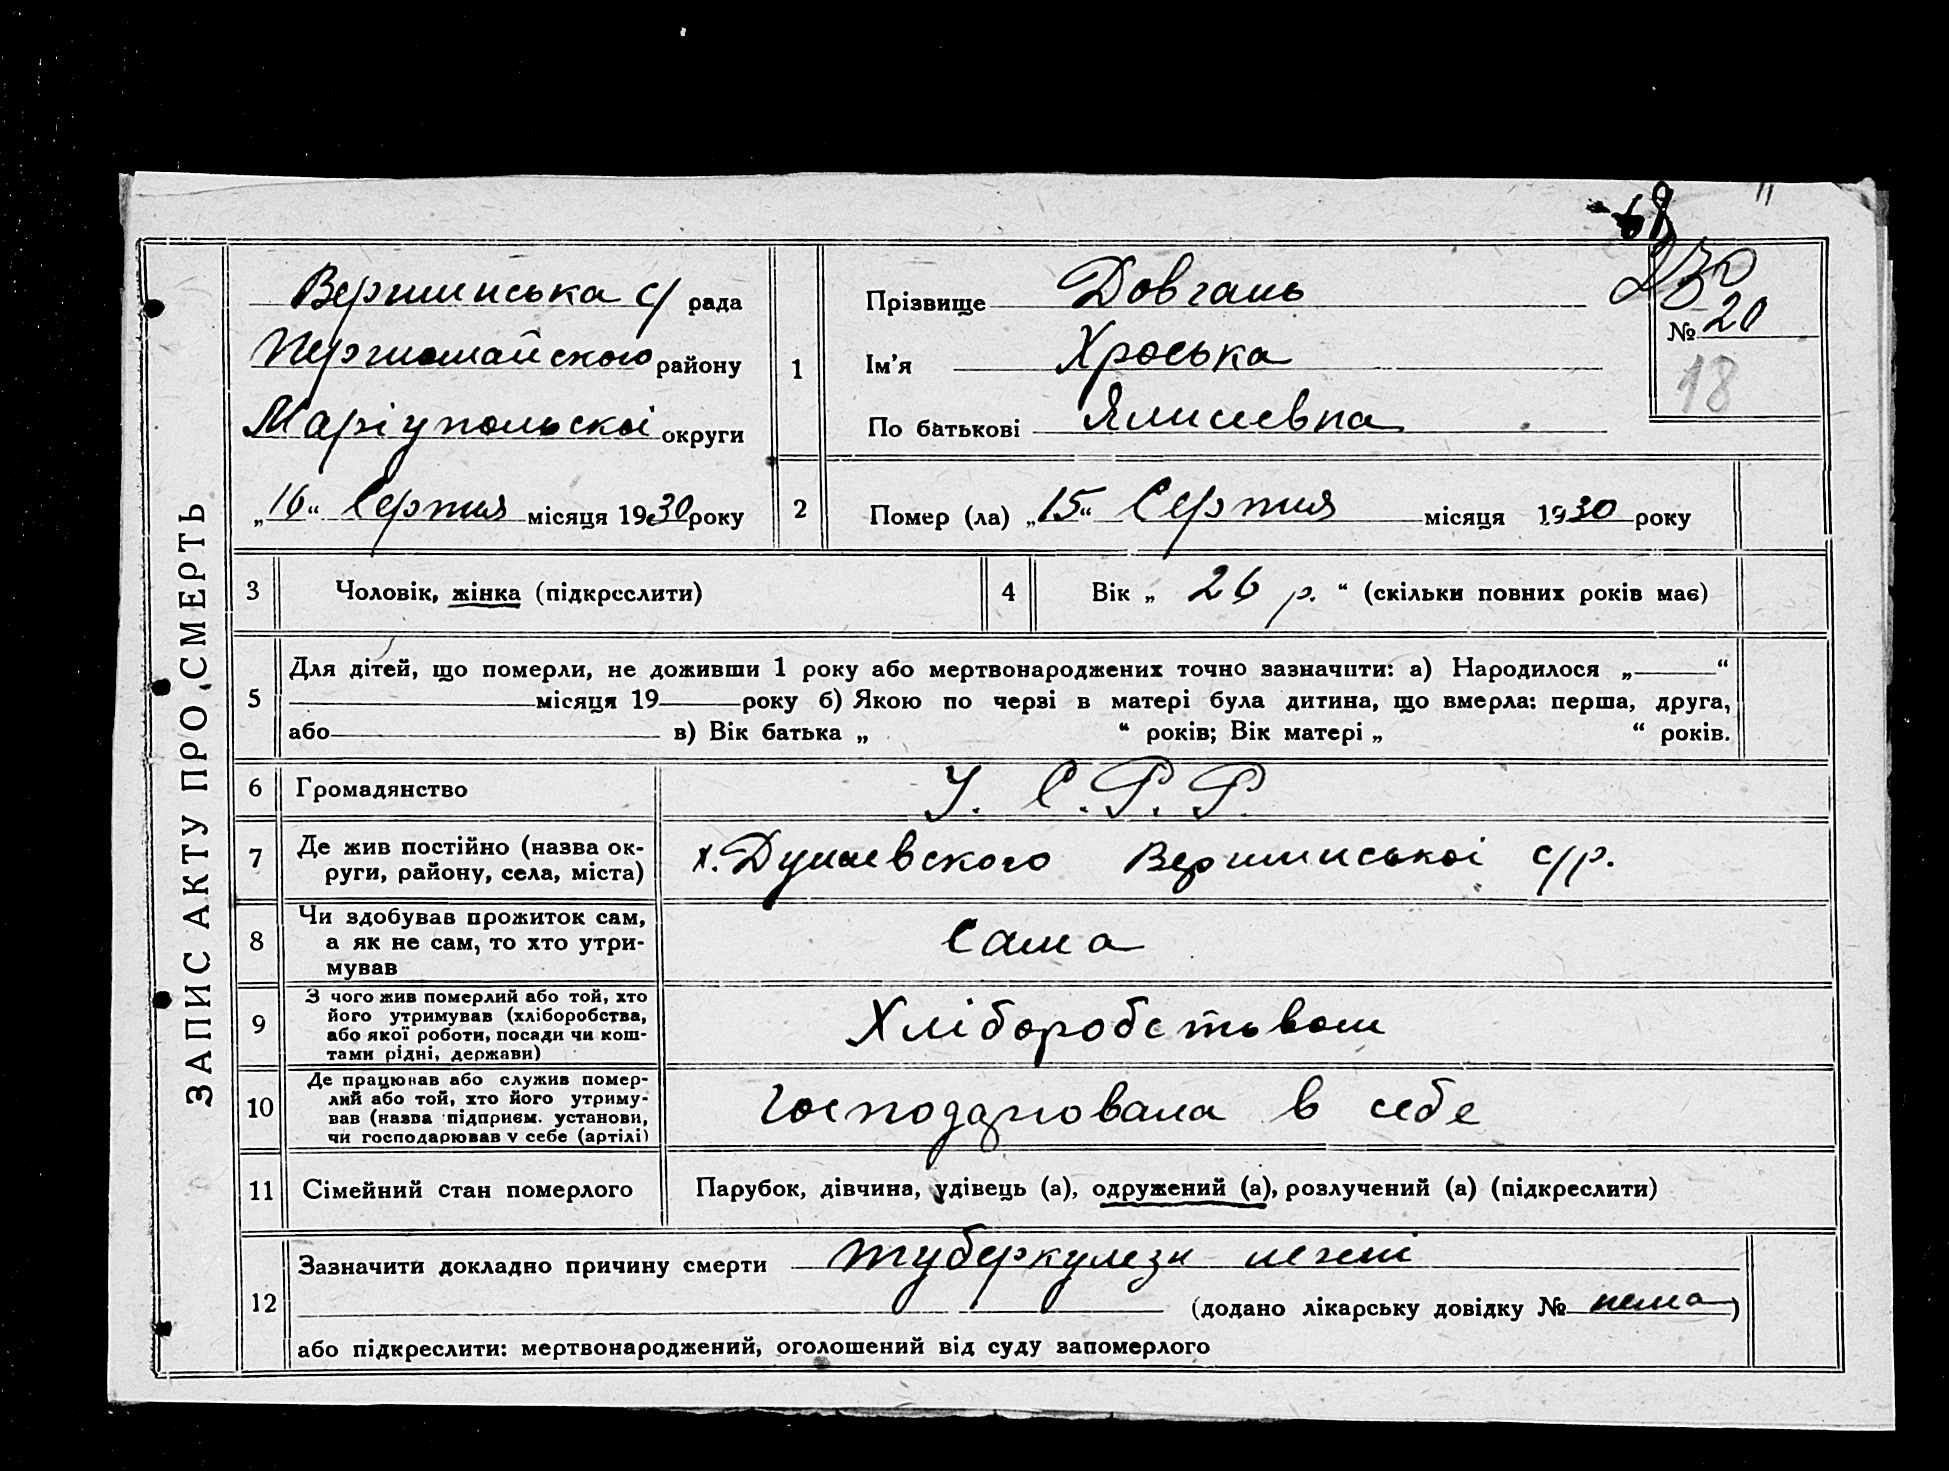 68
230
ЗАПИС АКТУ ПРО СМЕРТЬ
Вершинська с/ рада
Першомайского району
Маріупольскої округи
„16“ Серпня місяця 1930 року
1
Прізвище Довгань
Ім'я Хроська
По батькові
№ 20
18
2
Помер (ла) „15“ Серпня місяця 1930 року
3
Чоловік, жінка (підкреслити)
4
Вік „ 26 р. “ (скільки повних років має)
5
Для дітей, що померли, не доживши 1 року або мертвонароджених точно зазначити: а) Народилося „ “
місяця 19 року б) Якою по черзі в матері була дитина, що вмерла: перша, друга,
або в) Вік батька „ “ років; Вік матері „ “ років.
6
Громадянство
У. С. Р. Р.
7
Де жив постійно (назва ок-
руги, району, села, міста)
х. Дунаевского Вершинської с/р.
8
Чи здобував прожиток сам,
а як не сам, то хто утри-
мував
Сама
9
З чого жив померлий або той, хто
його утримував (хліборобства,
або якої роботи, посади чи кош-
тами рідні, держави)
Хліборобством
10
Де працював або служив помер-
лий або той, хто його утриму-
вав (назва підприєм. установи,
чи господарював у себе (артілі)
Господарювала в себе
11
Сімейний стан померлого
Парубок, дівчина, удівець (а), одружений (а), розлучений (а) (підкреслити)
12
Зазначити докладно причину смерти туберкулези легені
(додано лікарську довідку № нема)
або підкреслити: мертвонароджений, оголошений від суду запомерлого